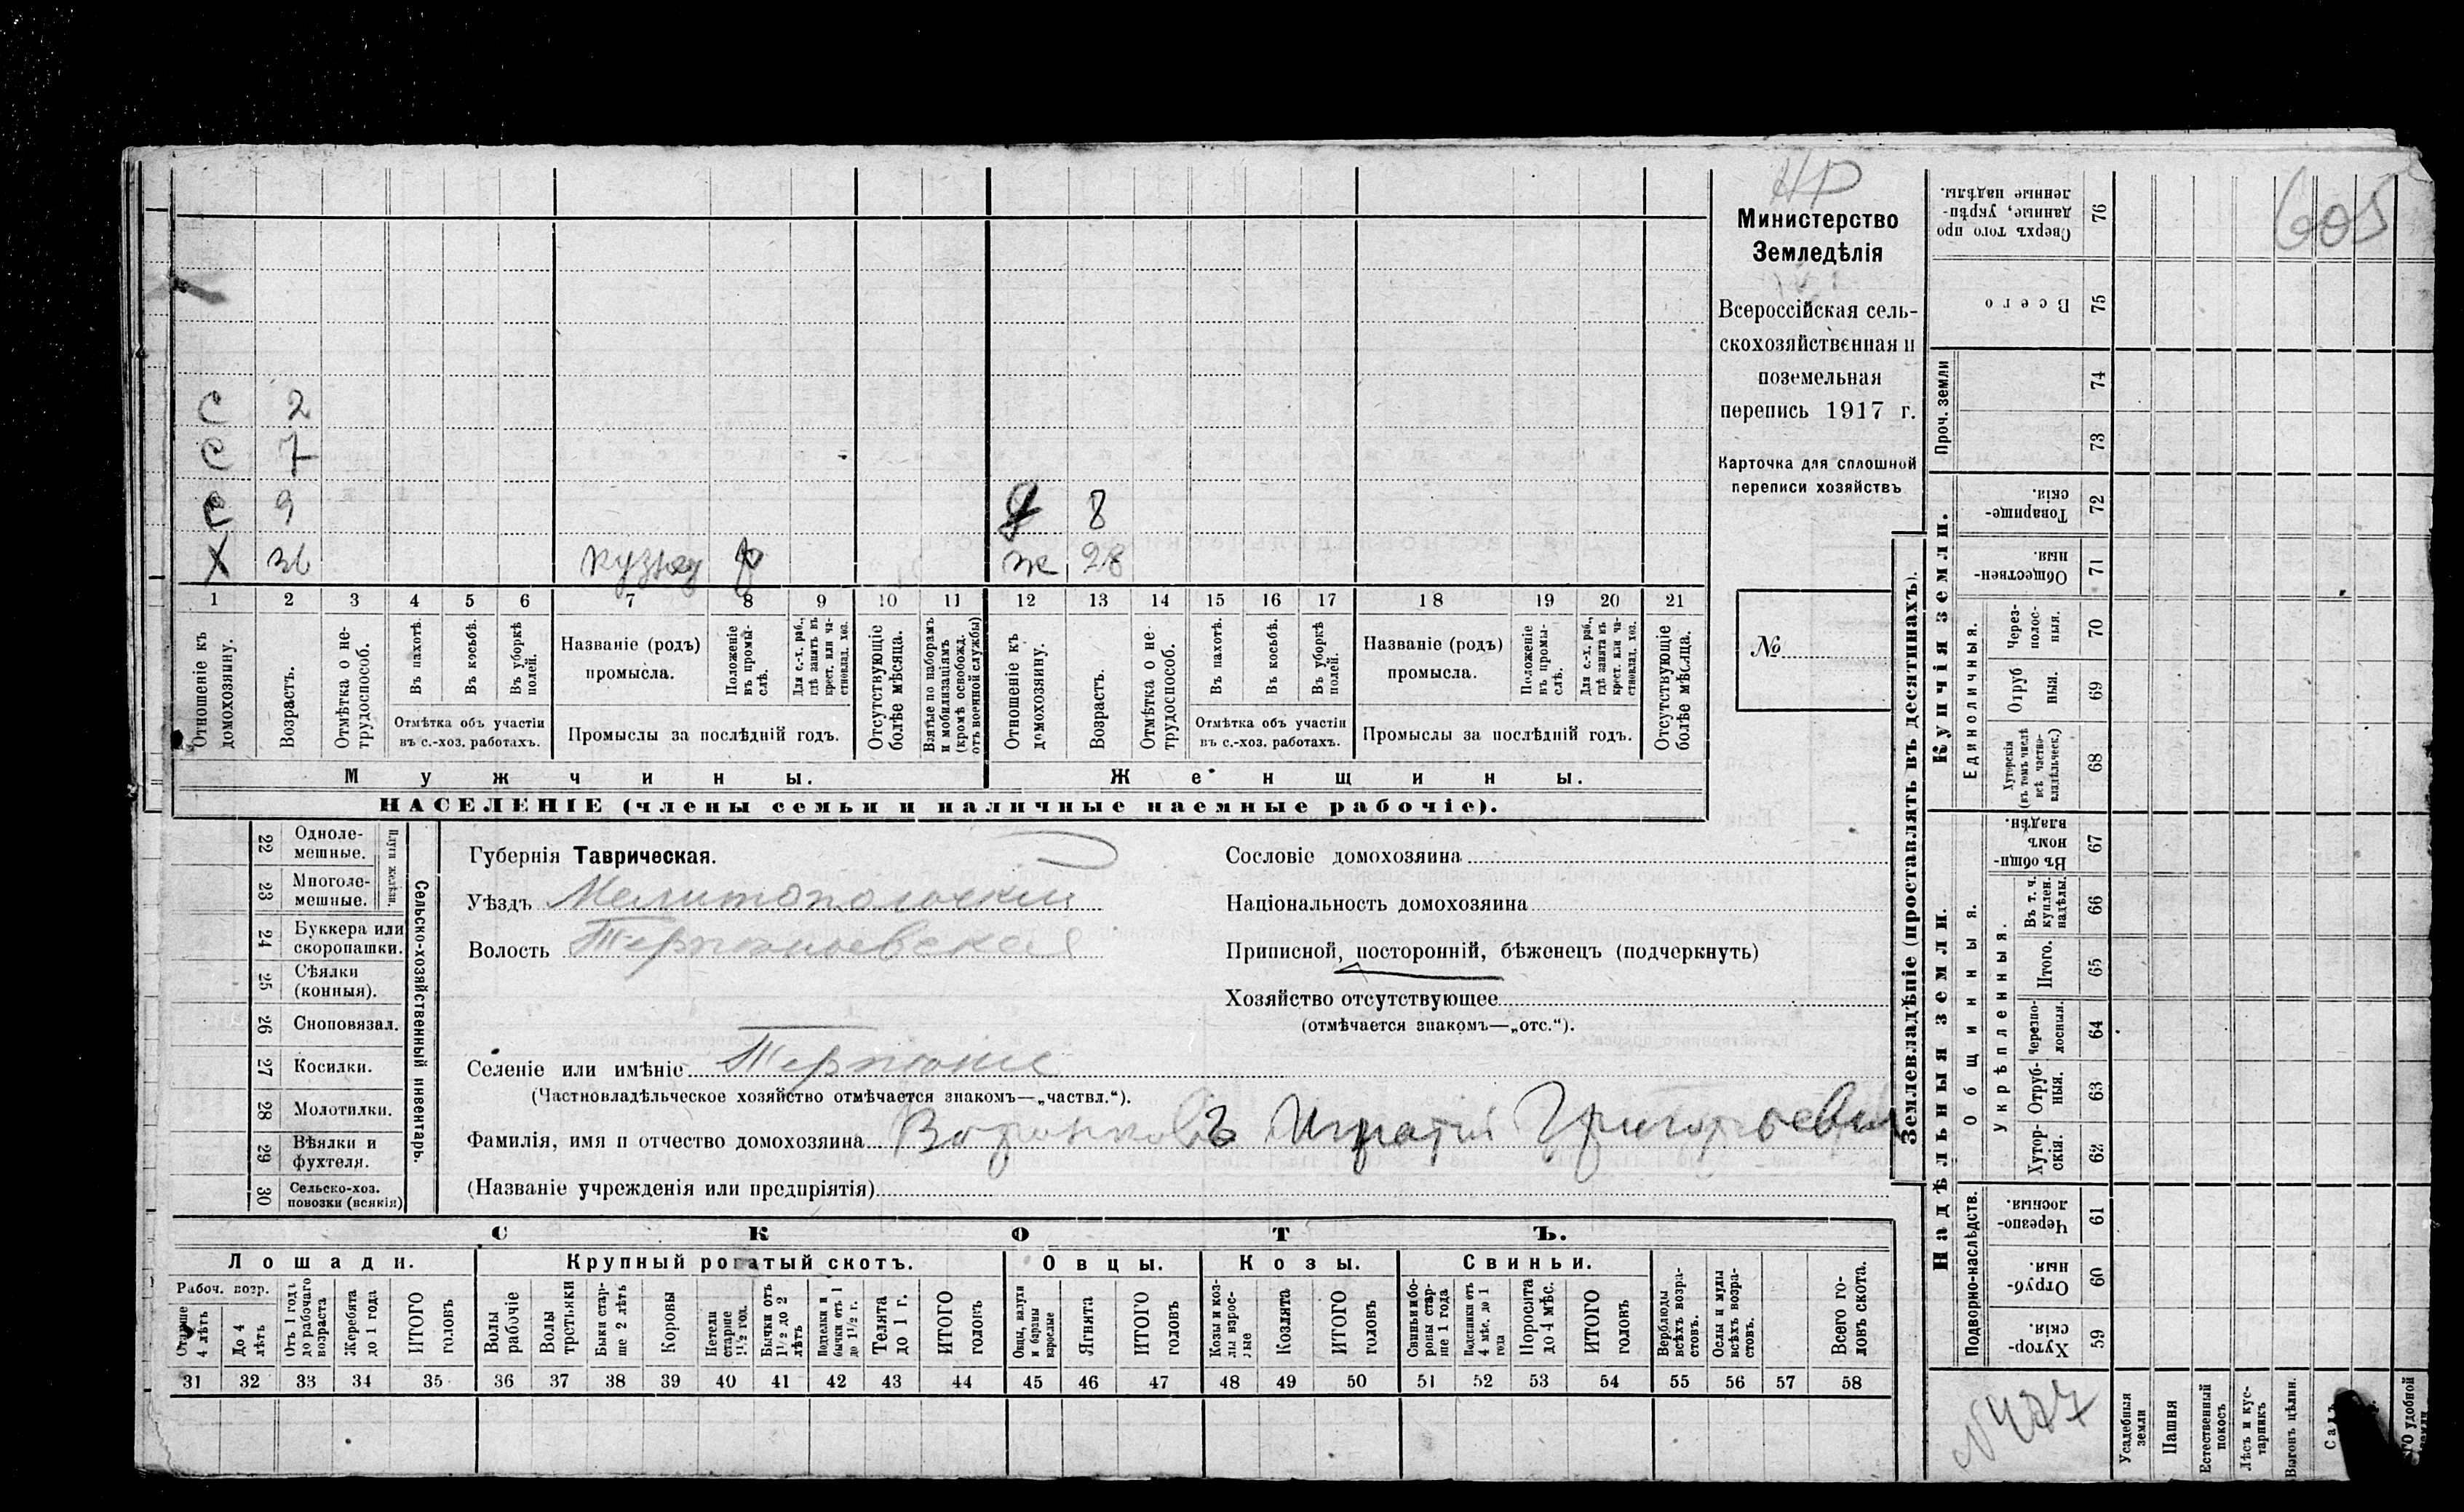 НР
605
Министерство
Земледѣлія
Всероссійская сель-
скохозяйственная и
поземельная
перепись 1917 г.
Карточка для сплошной
переписи хозяйствъ
№
С 2
С 7
С 9 д 8
Х 36 кузнец ж 28
1 2 3 4 5 6 7 8 9 10 11 12 13 14 15 16 17 18 19 20 21
Отношеніе къ домохозяину.
Возрастъ.
Отмѣтка о не-трудоспособ.
Въ пахотѣ.
Въ косьбѣ.
Въ уборкѣ полей.
Отмѣтка объ участіи
въ с.-хоз. работахъ.
Названіе (родъ)
промысла.
Положеніе въ промы-слѣ.
Для с.-х. раб., гдѣ занятъ въ крест. или ча-стновлад. хоз.
Промыслы за послѣдній годъ.
Отсутствующіе болѣе мѣсяца.
Взятые по наборамъ и мобилизаціямъ (кромѣ освобожд. отъ военной службы)
Отношеніе къ домохозяину.
Возрастъ.
Отмѣтка о не-трудоспособ.
Въ пахотѣ.
Въ косьбѣ.
Въ уборкѣ полей.
Отмѣтка объ участіи
въ с.-хоз. работахъ.
Названіе (родъ)
промысла.
Положеніе въ промы-слѣ.
Для с.-х. раб., гдѣ занята въ крест. или ча-стновлад. хоз.
Промыслы за послѣдній годъ.
Отсутствующіе болѣе мѣсяца.
Мужчины. Женщины.
НАСЕЛЕНІЕ (члены семьи и наличные наемные рабочіе).
22 Одноле-мешные.
23 Многоле-мешные.
Плуги желѣзн.
24 Буккера или скоропашки.
25 Сѣялки (конныя).
26 Сноповязал.
27 Косилки.
28 Молотилки.
29 Вѣялки и фухтеля.
30 Сельско-хоз. повозки (всякія)
Сельско-хозяйственный инвентарь.
Губернія Таврическая.
Уѣздъ Мелитопольскій
Волость Терпѣньевская
Селеніе или имѣніе Терпѣнье
(Частновладѣльческое хозяйство отмѣчается знакомъ—„частвл.“).
Фамилія, имя и отчество домохозяина Воронковъ Игнатій Григорьевич
(Названіе учрежденія или предпріятія)
Сословіе домохозяина
Національность домохозяина
Приписной, посторонній, бѣженецъ (подчеркнуть)
Хозяйство отсутствующее
(отмѣчается знакомъ—„отс.“).
СКОТЪ.
Лошади. Крупный рогатый скотъ. Овцы. Козы. Свиньи.
Рабоч. возр.
Старше 4 лѣтъ
До 4 лѣтъ
Отъ 1 года до рабочаго возраста
Жеребята до 1 года
ИТОГО головъ
Волы рабочіе
Волы третьяки
Быки стар-ше 2 лѣтъ
Коровы
Нетели старше 1½ год.
Бычки отъ 1½ до 2 лѣтъ
Подтелки и бычки отъ 1 до 1½ г.
Телята до 1 г.
ИТОГО головъ
Овцы, валухи и бараны взрослые
Ягнята
ИТОГО головъ
Козы и коз-лы взрос-лые
Козлята
ИТОГО головъ
Свиньи и бо-ровы стар-ше 1 года
Подсвинки отъ 4 мѣс. до 1 года
Поросята до 4 мѣс.
ИТОГО головъ
Верблюды всѣхъ возра-стовъ.
Ослы и мулы всѣхъ возра-стовъ.
Всего го-ловъ скота.
31 32 33 34 35 36 37 38 39 40 41 42 43 44 45 46 47 48 49 50 51 52 53 54 55 56 57 58
Землевладѣніе (проставлять въ десятинахъ).
Надѣльныя земли.
Купчія земли.
Проч. земли
Сверхъ того про данные, укрѣп-ленные надѣлы. 76
Всего 75
74
73
Товарище-скія. 72
Обществен-ныя. 71
Единоличныя.
Через-полос-ныя. 70
Отруб ныя. 69
Хуторскія (въ томъ числѣ всѣ частно-владѣльческ.) 68
Общинныя.
Въ общи-номъ владѣн. 67
Укрѣпленныя.
Въ т. ч. куплен. надѣлы. 66
Итого. 65
Черезпо-лосныя. 64
Отруб-ныя. 63
Хутор-скія. 62
Подворно-наслѣдств.
Черезпо-лосныя. 61
Отруб-ныя. 60
Хутор-скія. 59
№ 477
Усадебныя земли
Пашня
Естественный покосъ
Лѣсъ и кус-тарникъ
Выгонъ цѣлин.
Садъ
удобной